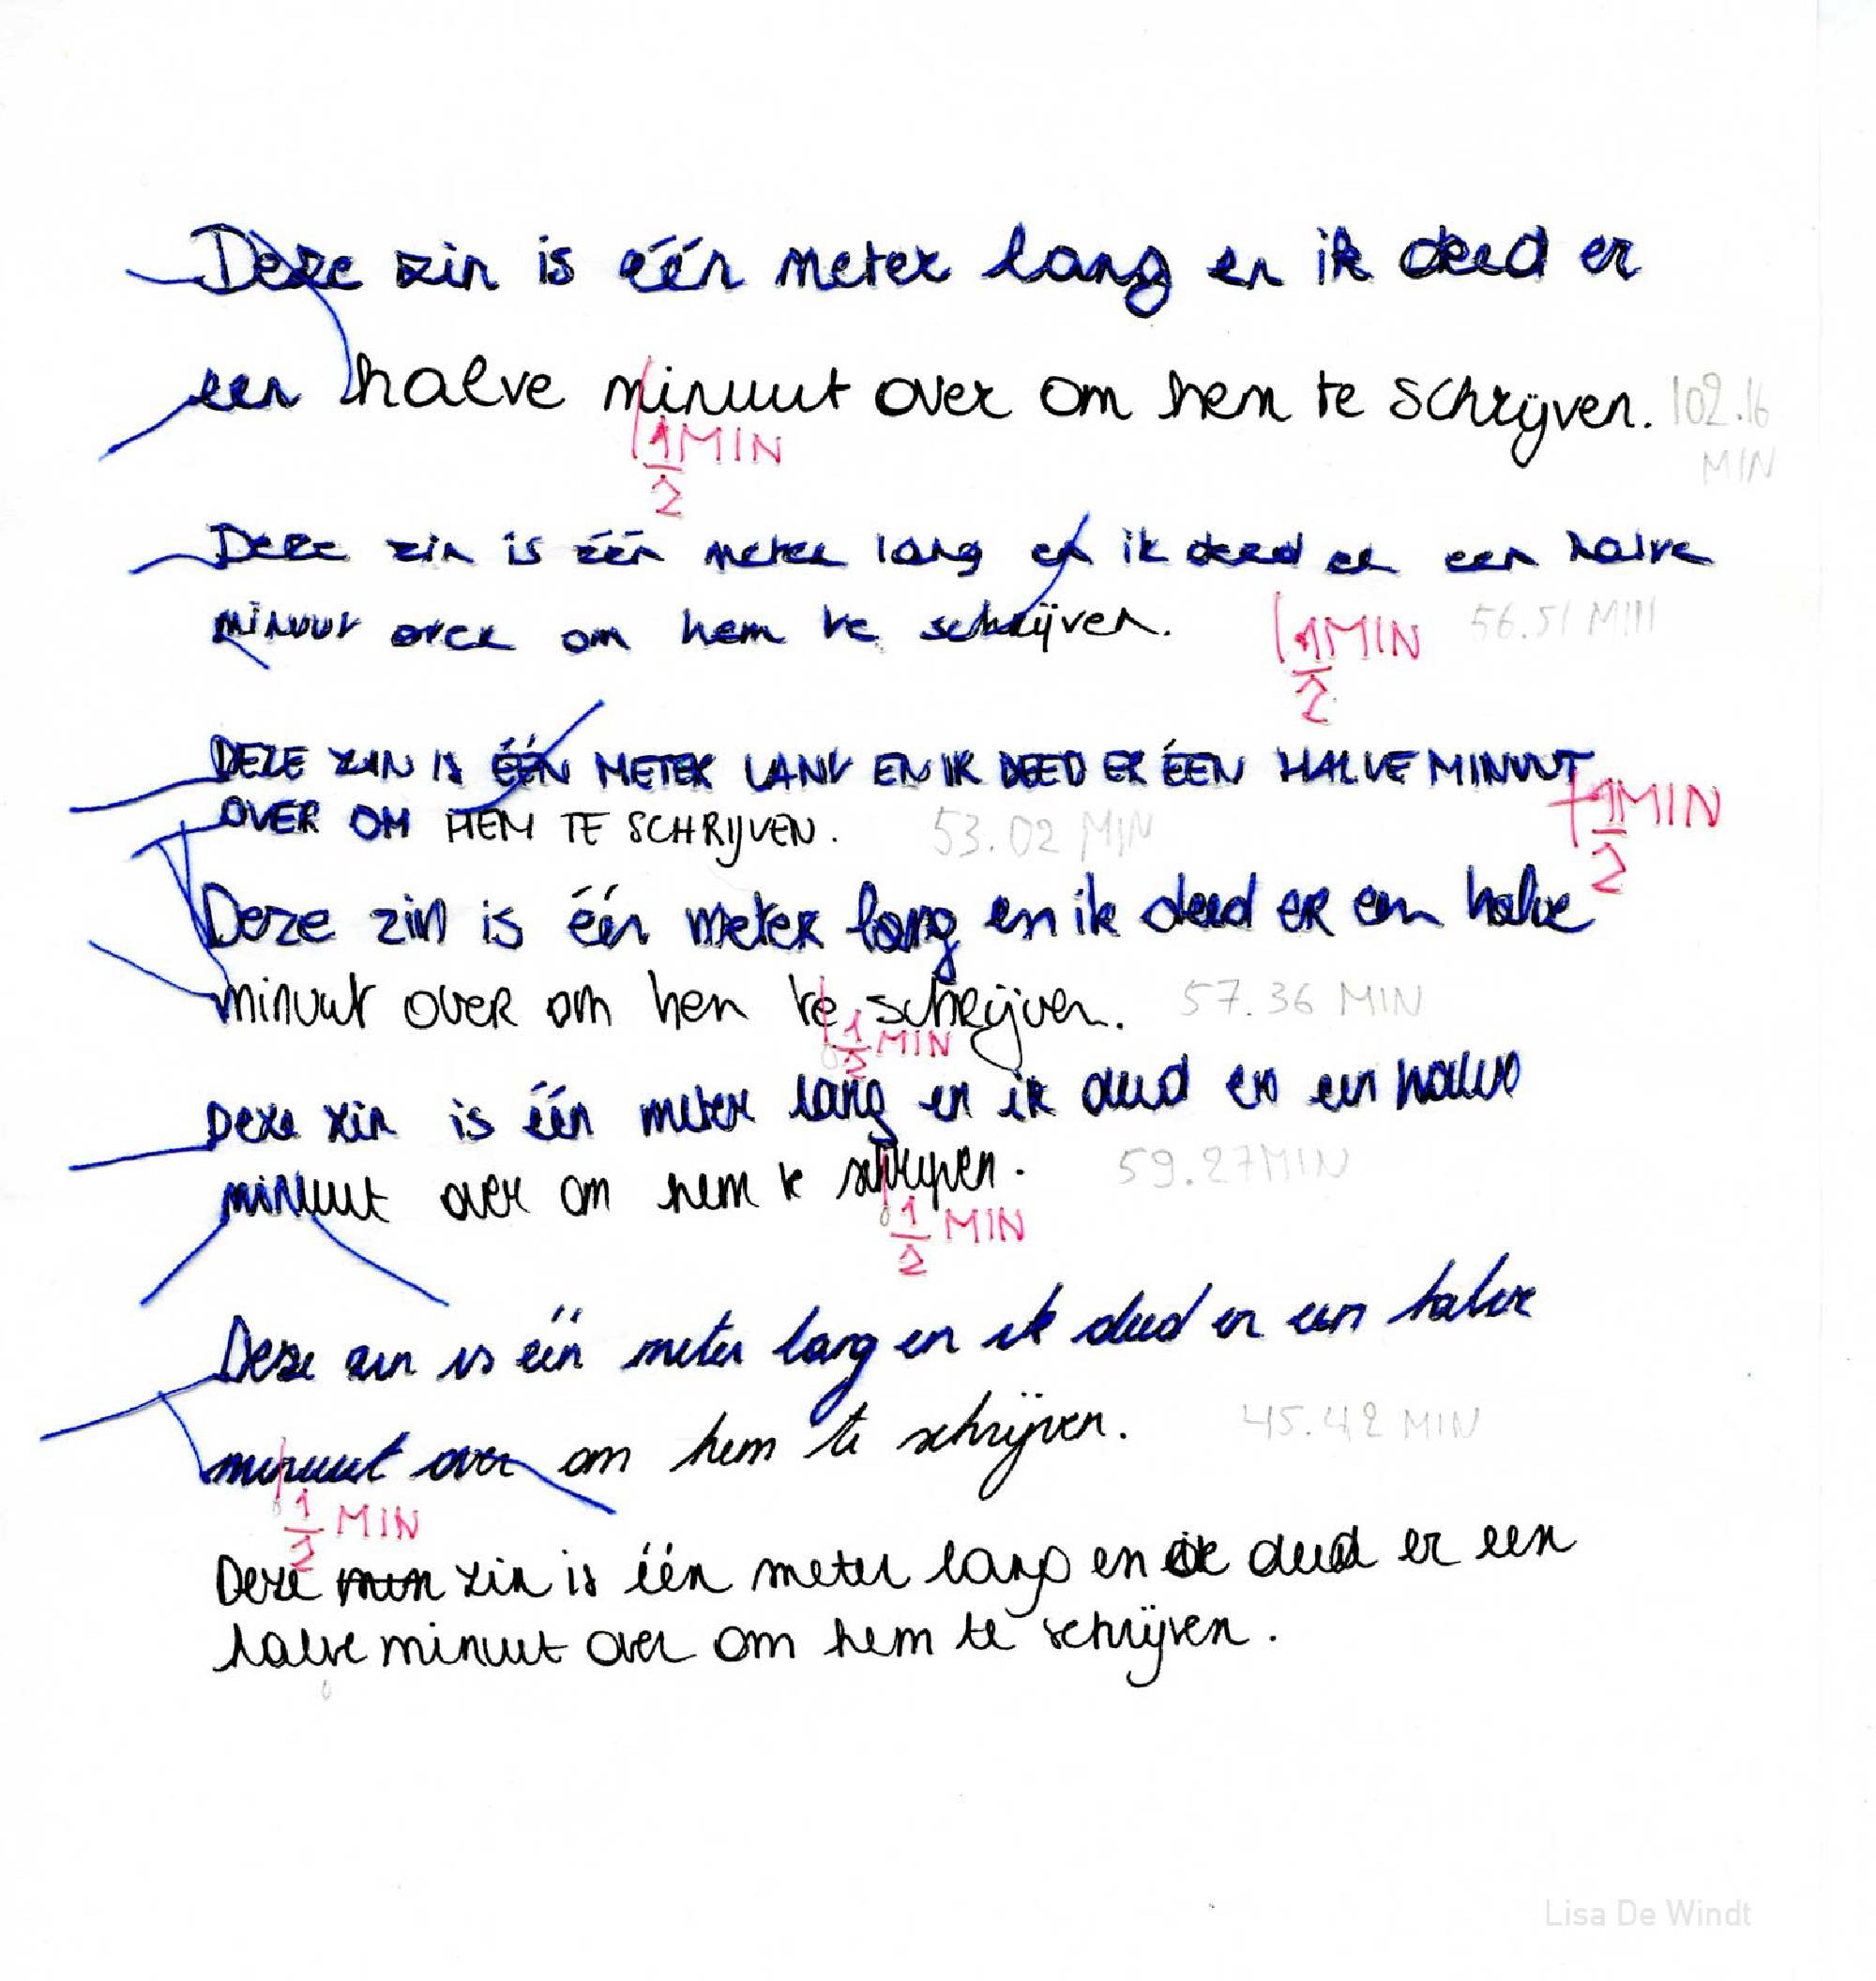 Deze zin is één meter lang en ik deed er
een halve minuut over om hem te schrijven. 102.16
1/2 MIN MIN
Deze zin is één meter lang en ik deed er een halve
minuut over om hem te schrijven. 1/2 MIN 56.51 MIN
DEZE ZIN IS ÉÉN METER LANG EN IK DEED ER ÉEN HALVE MINUUT
1/2 MIN
OVER OM HEM TE SCHRIJVEN. 53.02 MIN
Deze zin is één meter lang en ik deed er een halve
minuut over om hem te schrijven. 57.36 MIN
1/2 MIN
Deze zin is één meter lang en ik deed er een halve
minuut over om hem te schrijven. 59.27 MIN
1/2 MIN
Deze zin is één meter lang en ik deed er een halve
minuut over om hem te schrijven. 45.42 MIN
1/2 MIN
Deze zin is één meter lang en ik deed er een
halve minuut over om hem te schrijven.
Lisa De Windt